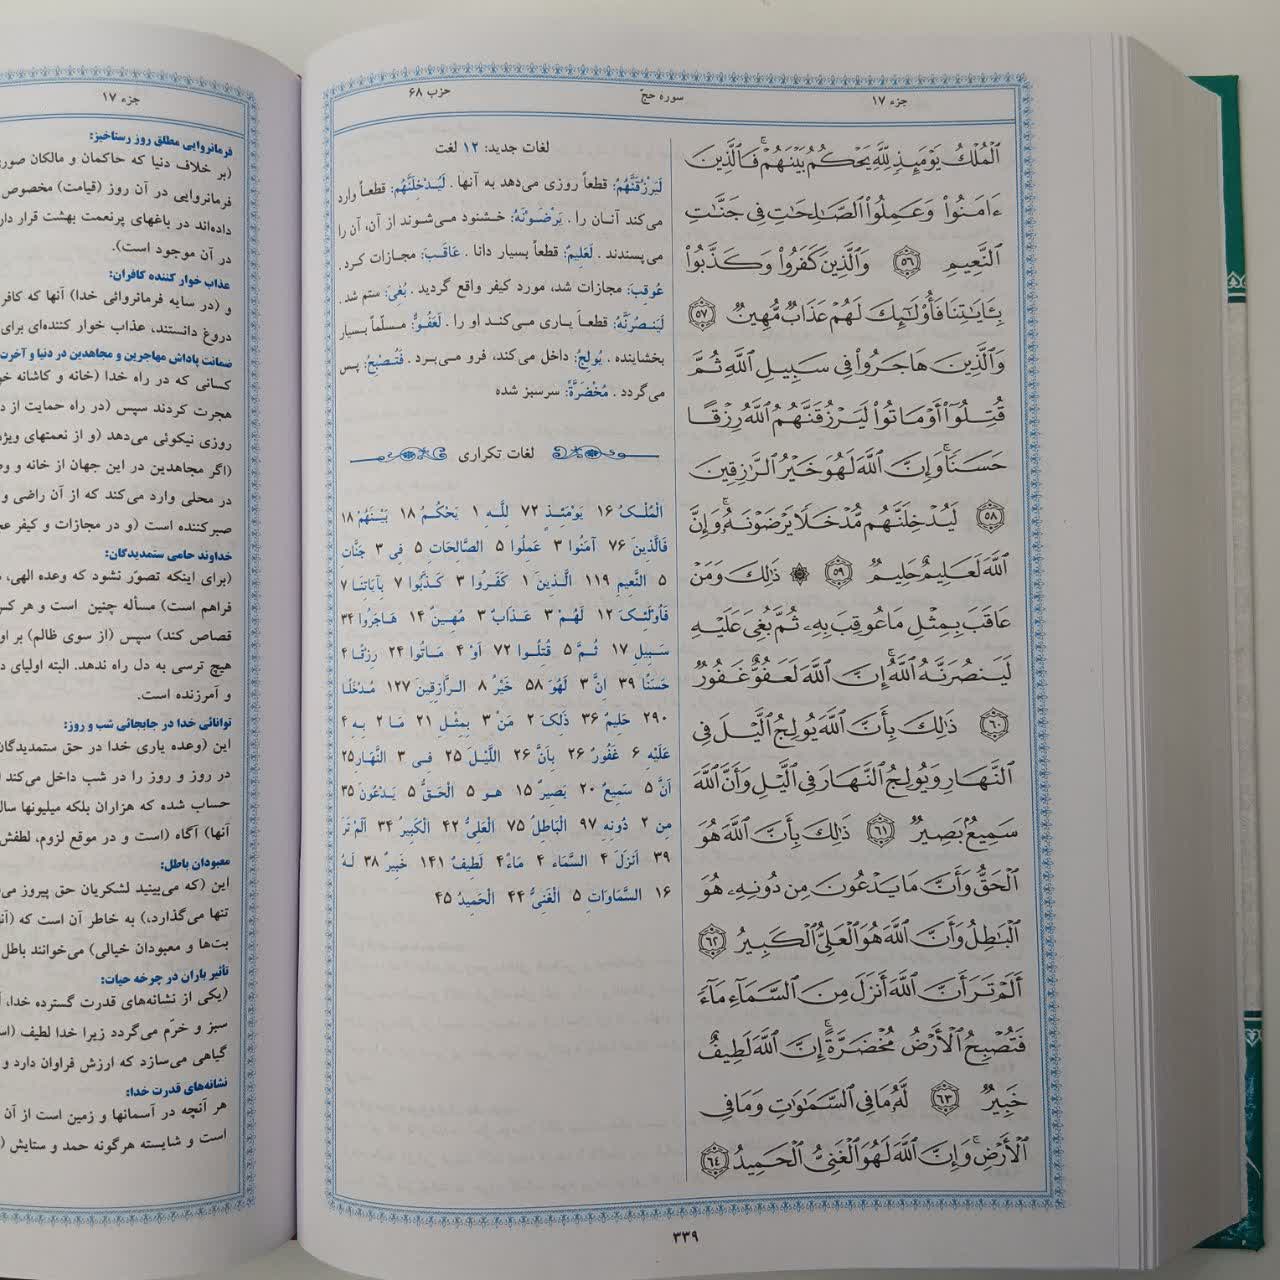 جزء ۱۷
سوره حجّ
حزب ۶۸
ٱلْمُلْكُ يَوْمَئِذٍ لِلَّهِ يَحْكُمُ بَيْنَهُمْ ۚ فَٱلَّذِينَ
ءَامَنُوا۟ وَعَمِلُوا۟ ٱلصَّٰلِحَٰتِ فِي جَنَّٰتِ
ٱلنَّعِيمِ ۝٥٦ وَٱلَّذِينَ كَفَرُوا۟ وَكَذَّبُوا۟
بِـَٔايَٰتِنَا فَأُو۟لَٰٓئِكَ لَهُمْ عَذَابٌ مُّهِينٌ ۝٥٧
وَٱلَّذِينَ هَاجَرُوا۟ فِي سَبِيلِ ٱللَّهِ ثُمَّ
قُتِلُوٓا۟ أَوْ مَاتُوا۟ لَيَرْزُقَنَّهُمُ ٱللَّهُ رِزْقًا
حَسَنًا ۚ وَإِنَّ ٱللَّهَ لَهُوَ خَيْرُ ٱلرَّٰزِقِينَ
۝٥٨ لَيُدْخِلَنَّهُم مُّدْخَلًا يَرْضَوْنَهُۥ ۗ وَإِنَّ
ٱللَّهَ لَعَلِيمٌ حَلِيمٌ ۝٥٩ ۞ ذَٰلِكَ وَمَنْ
عَاقَبَ بِمِثْلِ مَا عُوقِبَ بِهِۦ ثُمَّ بُغِيَ عَلَيْهِ
لَيَنصُرَنَّهُ ٱللَّهُ ۗ إِنَّ ٱللَّهَ لَعَفُوٌّ غَفُورٌ
۝٦٠ ذَٰلِكَ بِأَنَّ ٱللَّهَ يُولِجُ ٱلَّيْلَ فِي
ٱلنَّهَارِ وَيُولِجُ ٱلنَّهَارَ فِي ٱلَّيْلِ وَأَنَّ ٱللَّهَ
سَمِيعٌ بَصِيرٌ ۝٦١ ذَٰلِكَ بِأَنَّ ٱللَّهَ هُوَ
ٱلْحَقُّ وَأَنَّ مَا يَدْعُونَ مِن دُونِهِۦ هُوَ
ٱلْبَٰطِلُ وَأَنَّ ٱللَّهَ هُوَ ٱلْعَلِيُّ ٱلْكَبِيرُ ۝٦٢
أَلَمْ تَرَ أَنَّ ٱللَّهَ أَنزَلَ مِنَ ٱلسَّمَآءِ مَآءً
فَتُصْبِحُ ٱلْأَرْضُ مُخْضَرَّةً ۗ إِنَّ ٱللَّهَ لَطِيفٌ
خَبِيرٌ ۝٦٣ لَّهُۥ مَا فِي ٱلسَّمَٰوَٰتِ وَمَا فِي
ٱلْأَرْضِ ۗ وَإِنَّ ٱللَّهَ لَهُوَ ٱلْغَنِيُّ ٱلْحَمِيدُ ۝٦٤
لغات جدید: ۱۲ لغت
لَيَرْزُقَنَّهُمُ: قطعاً روزی می‌دهد به آنها . لَيُدْخِلَنَّهُم: قطعاً وارد
می‌کند آنان را . يَرْضَوْنَهُ: خشنود می‌شوند از آن، آن را
می‌پسندند . لَعَلِيمٌ: قطعاً بسیار دانا . عَاقَبَ: مجازات کرد .
عُوقِبَ: مجازات شد، مورد کیفر واقع گردید . بُغِيَ: ستم شد .
لَيَنصُرَنَّهُ: قطعاً یاری می‌کند او را . لَعَفُوٌّ: مسلّماً بسیار
بخشاینده . يُولِجُ: داخل می‌کند، فرو می‌برد . فَتُصْبِحُ: پس
می‌گردد . مُخْضَرَّةً: سرسبز شده
لغات تکراری
الْمُلْكُ ۱۶ يَوْمَئِذٍ ۷۲ لِلَّهِ ۱ يَحْكُمُ ۱۸ بَيْنَهُمْ ۱۸
فَالَّذِينَ ۷۶ آمَنُوا ۳ عَمِلُوا ۵ الصَّالِحَاتِ ۵ فِي ۳ جَنَّاتِ
۵ النَّعِيمِ ۱۱۹ الَّذِينَ ۱ كَفَرُوا ۳ كَذَّبُوا ۷ بِآيَاتِنَا ۷
فَأُولَئِكَ ۱۲ لَهُمْ ۳ عَذَابٌ ۳ مُهِينٌ ۱۴ هَاجَرُوا ۳۴
سَبِيلِ ۱۷ ثُمَّ ۵ قُتِلُوا ۷۲ أَوْ ۴ مَاتُوا ۲۴ رِزْقًا ۴
حَسَنًا ۳۹ إِنَّ ۳ لَهُوَ ۵۸ خَيْرُ ۸ الرَّازِقِينَ ۱۲۷ مُدْخَلًا
۲۹۰ حَلِيمٌ ۳۶ ذَلِكَ ۲ مَنْ ۳ بِمِثْلِ ۲۱ مَا ۲ بِهِ ۴
عَلَيْهِ ۶ غَفُورٌ ۲۶ بِأَنَّ ۲۶ اللَّيْلَ ۲۵ فِي ۳ النَّهَارِ ۲۵
أَنَّ ۵ سَمِيعٌ ۲۰ بَصِيرٌ ۱۵ هُوَ ۵ الْحَقُّ ۵ يَدْعُونَ ۳۵
مِن ۲ دُونِهِ ۹۷ الْبَاطِلُ ۷۵ الْعَلِيُّ ۴۲ الْكَبِيرُ ۳۴ أَلَمْ تَرَ
۳۹ أَنزَلَ ۴ السَّمَاءِ ۴ مَاءً ۴ لَطِيفٌ ۱۴۱ خَبِيرٌ ۳۸ لَهُ
۱۶ السَّمَاوَاتِ ۵ الْغَنِيُّ ۴۴ الْحَمِيدُ ۴۵
۳۳۹
جزء ۱۷
فرمانروایی مطلق روز رستاخیز:
(بر خلاف دنیا که حاکمان و مالکان
فرمانروایی در آن روز (قیامت) مخصوص
داده‌اند در باغهای پرنعمت بهشت قرار
در آن موجود است).
عذاب خوار کننده کافران:
و (در سایه فرمانروائی خدا) آنها که
دروغ دانستند، عذاب خوار کننده‌ای برای
ضمانت پاداش مهاجرین و مجاهدین در دنیا و آخرت
کسانی که در راه خدا (خانه و کاشانه
هجرت کردند سپس (در راه حمایت از
روزی نیکوئی می‌دهد (و از نعمتهای
(اگر مجاهدین در این جهان از خانه و
در محلی وارد می‌کند که از آن راضی و
صبرکننده است (و در مجازات و کیفر
خداوند حامی ستمدیدگان:
(برای اینکه تصوّر نشود که وعده الهی،
فراهم است) مسأله چنین است و هر
قصاص کند) سپس (از سوی ظالم) بر
هیچ ترسی به دل راه ندهد. البته اولیای
و آمرزنده است.
توانائی خدا در جابجائی شب و روز:
این (وعده یاری خدا در حق ستمدیدگان
در روز و روز را در شب داخل می‌کند
حساب شده که هزاران بلکه میلیونها
آنها) آگاه (است و در موقع لزوم، لطفش
معبودان باطل:
این (که می‌بینید لشکریان حق پیروز
تنها می‌گذارد،) به خاطر آن است که
بت‌ها و معبودان خیالی) می‌خوانند باطل
تأثیر باران در چرخه حیات:
(یکی از نشانه‌های قدرت گسترده خدا،
سبز و خرّم می‌گردد زیرا خدا لطیف
گیاهی می‌سازد که ارزش فراوان دارد و
نشانه‌های قدرت خدا:
هر آنچه در آسمانها و زمین است از آن
است و شایسته هرگونه حمد و ستایش